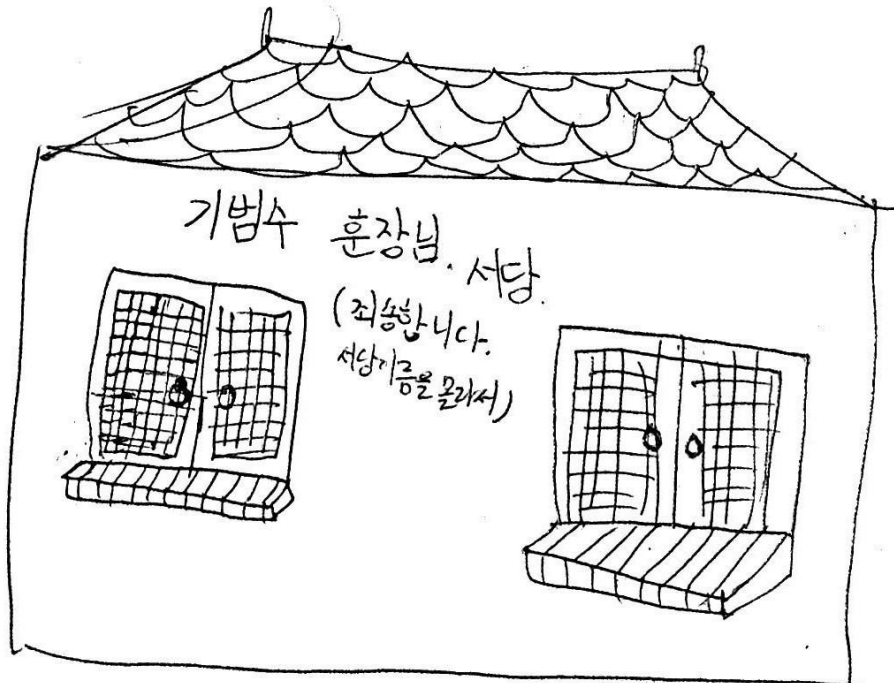 기범수 훈장님. 서당.
(죄송합니다.
서당이름을 몰라서)